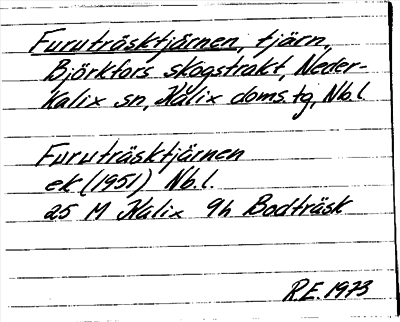 Furuträsktjärnen, tjärn,
Björkfors skogstrakt, Neder-
Kalix sn, Kalix doms.tg, Nb.l.
Furuträsktjärnen
ek (1951) Nb.l.
25 M Kalix 9h Bodträsk
R.E. 1973